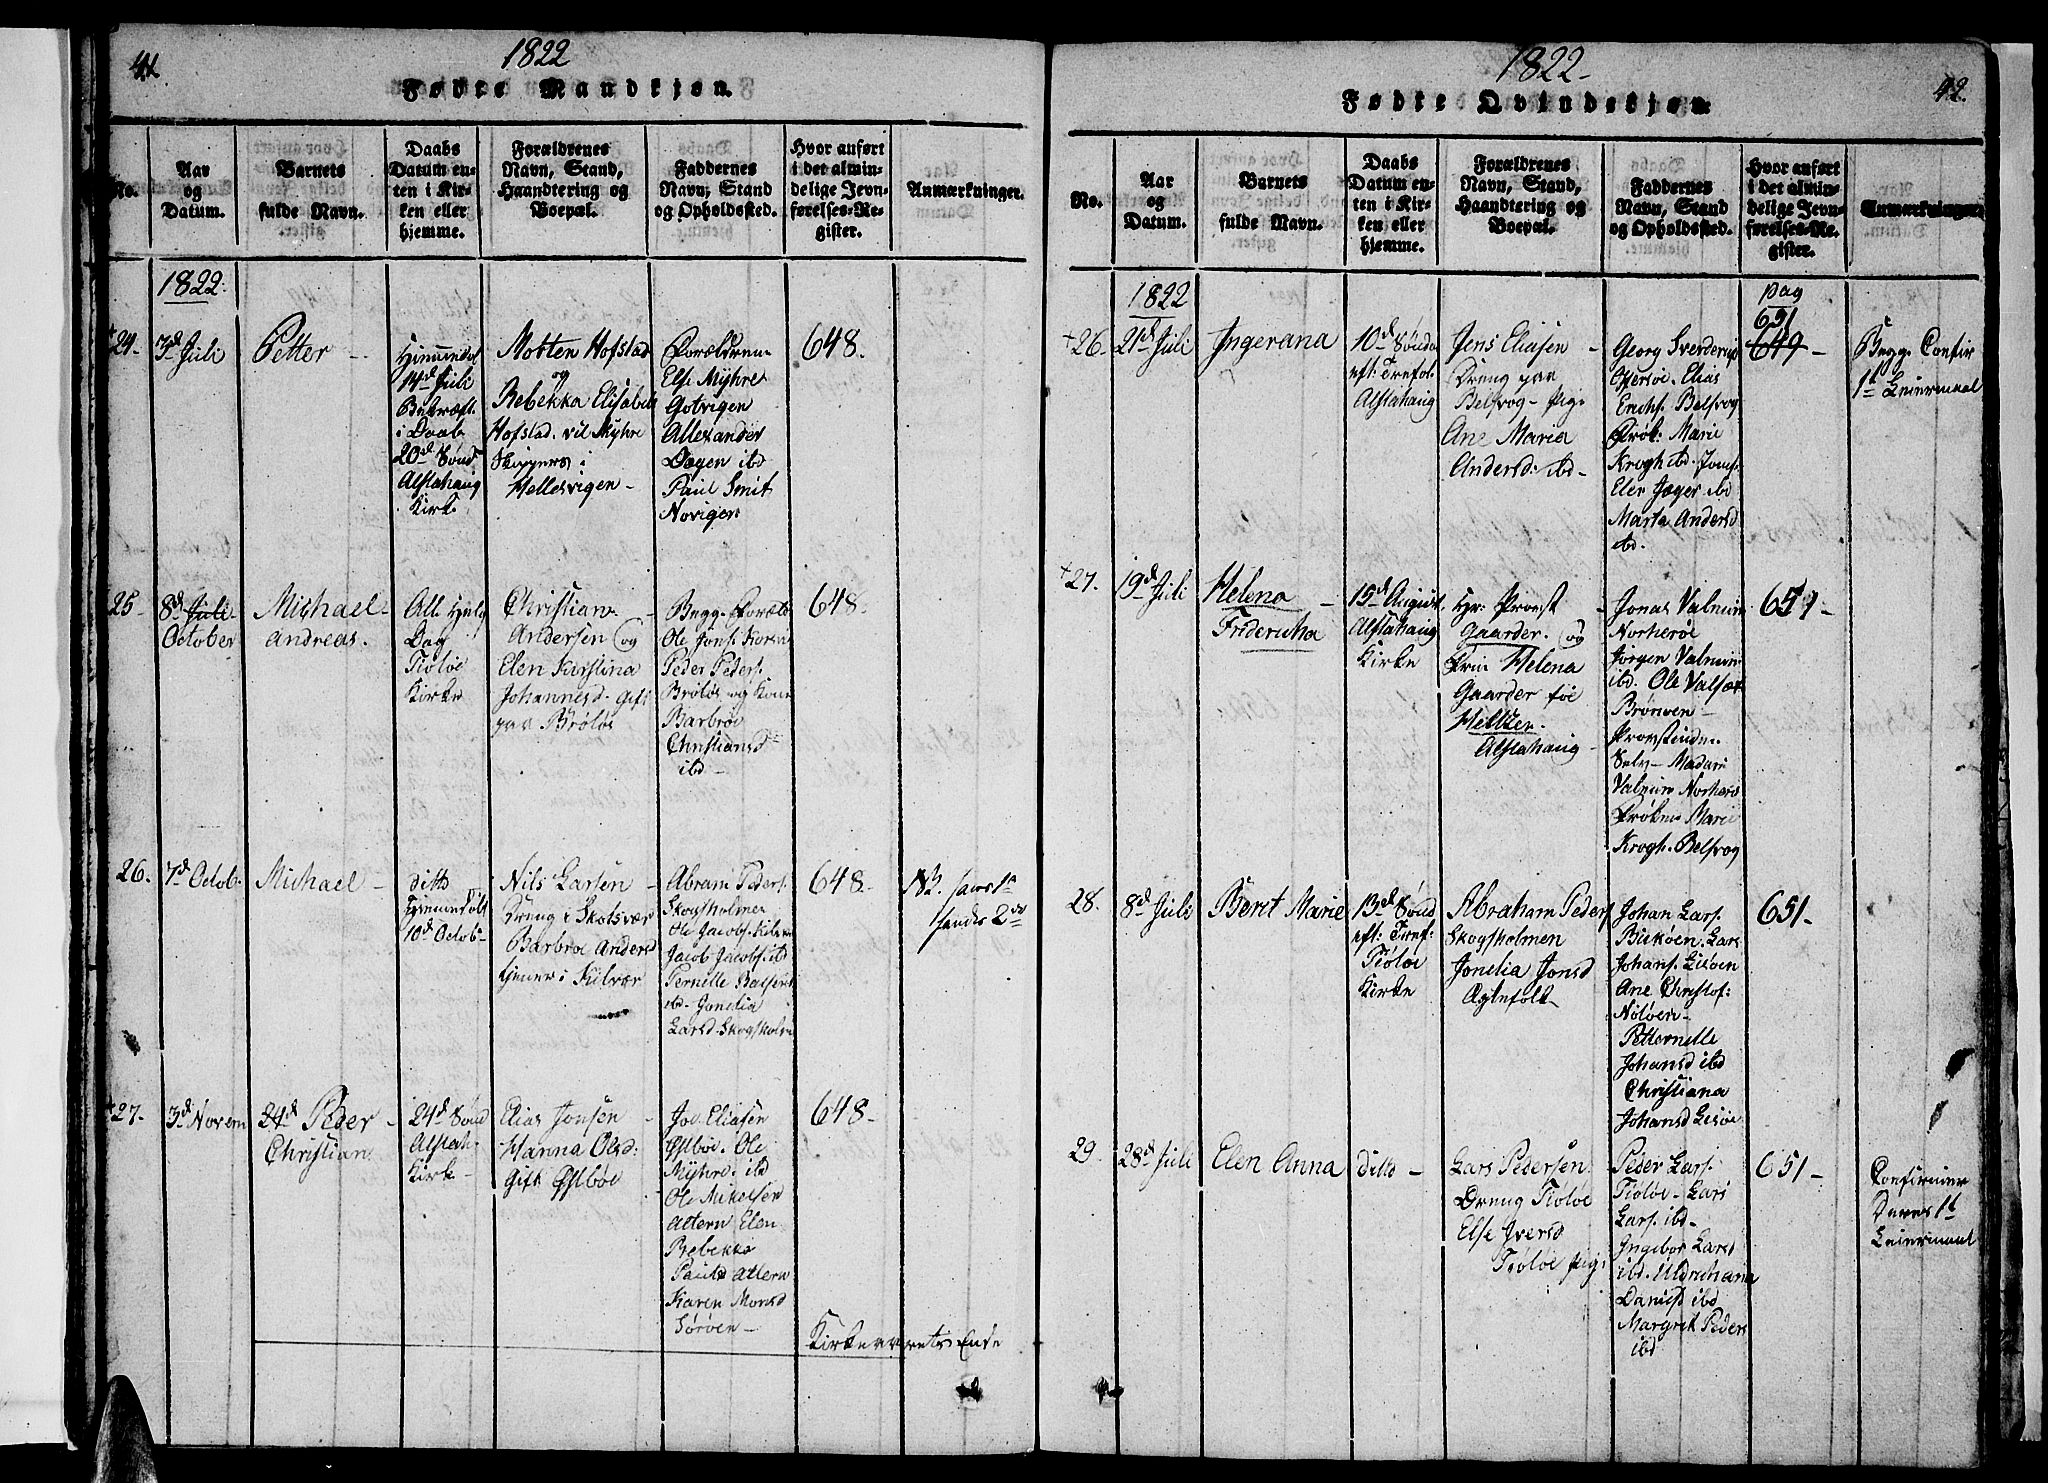 41
1822
Fødte Mandkjøn.
No.
Aar
og
Datum.
Barnets
fulde Navn.
Daabs
Datum en-
ten i Kir-
ken eller
hjemme.
Forældrenes
Navn, Stand,
Haandtering og
Boepæl.
Faddernes
Navn, Stand
og Opholdssted.
Hvor anført
i det almin-
delige Jevn-
førelses-Re-
gister.
Anmærkninger.
1822.
24.
3d Juli
Petter
14d Juli
i Daab
20d Sønd
Alstahaug
Kirke
Motten Hofstad
og
Rebekka Elisabet
Hofstad
Hellesvigen
Forældrene
Else Myhre
Gotvigen
Allexander
Dagen ibd
Paul Smit
Novigen
648.
25
8d Juli
October
Michael
Andreas.
All Helg
Dag
Tiøtøe
Kirke
Christian
Andersen og
Elen Kirstina
Johannesd. Gift
paa Brøløs
Begg. Foræld
Ole Jens.
Peder Peders.
Brøløs og Kone
Barbroe
Christiansd
ibd
648.
26.
7d Octob.
Michael
ditto
10d Octob
Nils Larsen
Dreng i Skotsvær
Barbroe Andersd
tjener i Kilvær
Abram Peders.
Skogsholmen
Ole Jacobs. Kilvær
Jacob Jacobs. ibd
Pernille
ibd. Jonelia
Larsd. Skogsholm
648.
NB. hans 1ste
hendes 2de
27.
3d Novem
24d Peder
Christian
24d Sønd
Alstah:
Kirke
Elias Jonsen
Hanna Olsd:
Gift Østbøe
Jo. Eliasen
Østbøe. Ole
Myhre. ibd
Ole Mikelsen
Altern Elen
Rebekka
Paulsd Altern
Karen Monsd
Sørøen
648
Kirkeaarets Ende
1822
Fødte Qvindekjøn.
42.
No.
Aar
og
Datum.
Barnets
fulde Navn.
Daabs
Datum en-
ten i Kir-
ken eller
hjemme.
Forældrenes
Navn, Stand,
Haandtering og
Boepæl.
Faddernes
Navn, Stand
og Opholdssted.
Hvor anført
i det almin-
delige Jevn-
førelses-Re-
gister.
Anmærkninger.
1822
26.
21d Juli
Ingerana
10d Sønd
eft: Trefol
Alstahaug
Jens Eliasen
Dreng paa
Belsvog
Ane Maria
Andersd: ibd
Georg Sverderup
Elias
Erichs. Belsvog
Frøk: Marie
Krogh ibd. Jomf.
Elen Jæger ibd
Marta Andersd
ibd.
pag
651
649
Begg. Confir
1t Leiermaal
27.
19d Juli
Helena
Fridericha
15d August
Alstahaug
Kirke
Hr: Provst
Gaarder. og
Fru Helena
Gaarderføe
Heltzen.
Alstahaug
Jonas Valnum
Norherøe
Jørgen Valnum
ibd. Ole Valsæt
Brønøen
Provstinden
Selv. Madam
Valnum Norherø
Frøken Marie
Krogh. Belsvog
651
28.
8d Juli
Berit Marie
13d Sønd
eft: Tref:
Tiøtøe
Kirke
Abraham Peders
Skogsholmen
Jonelia Jonsd
Ægtefolk
Johan Lars.
Lars
Johans. Lisøen
Ane Christof:
Petternelle
Johansd ibd
Christiana
Johansd Lisøe
651
29
28d Juli
Elen Anna
ditto
Lars Pedersen
Dreng Tiøtøe
Else Iversd
Tiøtøe pig:
Peder Lars.
Tiøtøe. Lars
Lars. ibd
Ingebor Larsd
ibd. Uldrichana
Danielsd ibd
Margret Peders
ibd
651
Confirmer
Deres 1t
Leiermaal